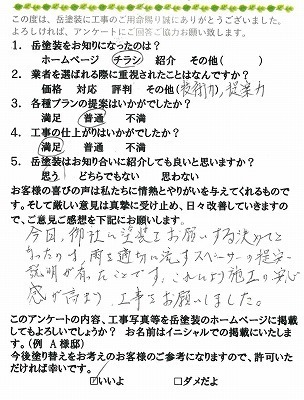 この度は、岳塗装に工事のご用命賜り誠にありがとうございました。
よろしければ、アンケートにご回答ご協力お願い致します。
1. 岳塗装をお知りになったのは？
ホームページ チラシ 紹介 その他( )
2. 業者を選ばれる際に重視されたことはなんですか？
価格 対応 評判 その他(技術力、提案力
3. 各種プランの提案はいかがでしたか？
満足 普通 不満
4. 工事の仕上がりはいかがでしたか？
満足 普通 不満
5. 岳塗装はお知り合いに紹介しても良いと思いますか？
思う どちらでもない 思わない
お客様の喜びの声は私たちに情熱とやりがいを与えてくれるもので
す。そして厳しい意見は真摯に受け止め、日々改善していきますの
で、ご意見ご感想を下記にお願いします。
今回、御社に塗装をお願いする決めてと
なったのは、雨を適切に流すスペーサーの提案、
説明が有ったことです。これにより施工の安心
感が高まり、工事をお願いしました。
このアンケートの内容、工事写真等を岳塗装のホームページに掲載
してもよろしいでしょうか？ お名前はイニシャルでの掲載にいたしま
す。（例 A 様邸）
今後塗り替えをお考えのお客様のご参考になりますので、許可いた
だければ幸いです。
☑いいよ □ダメだよ